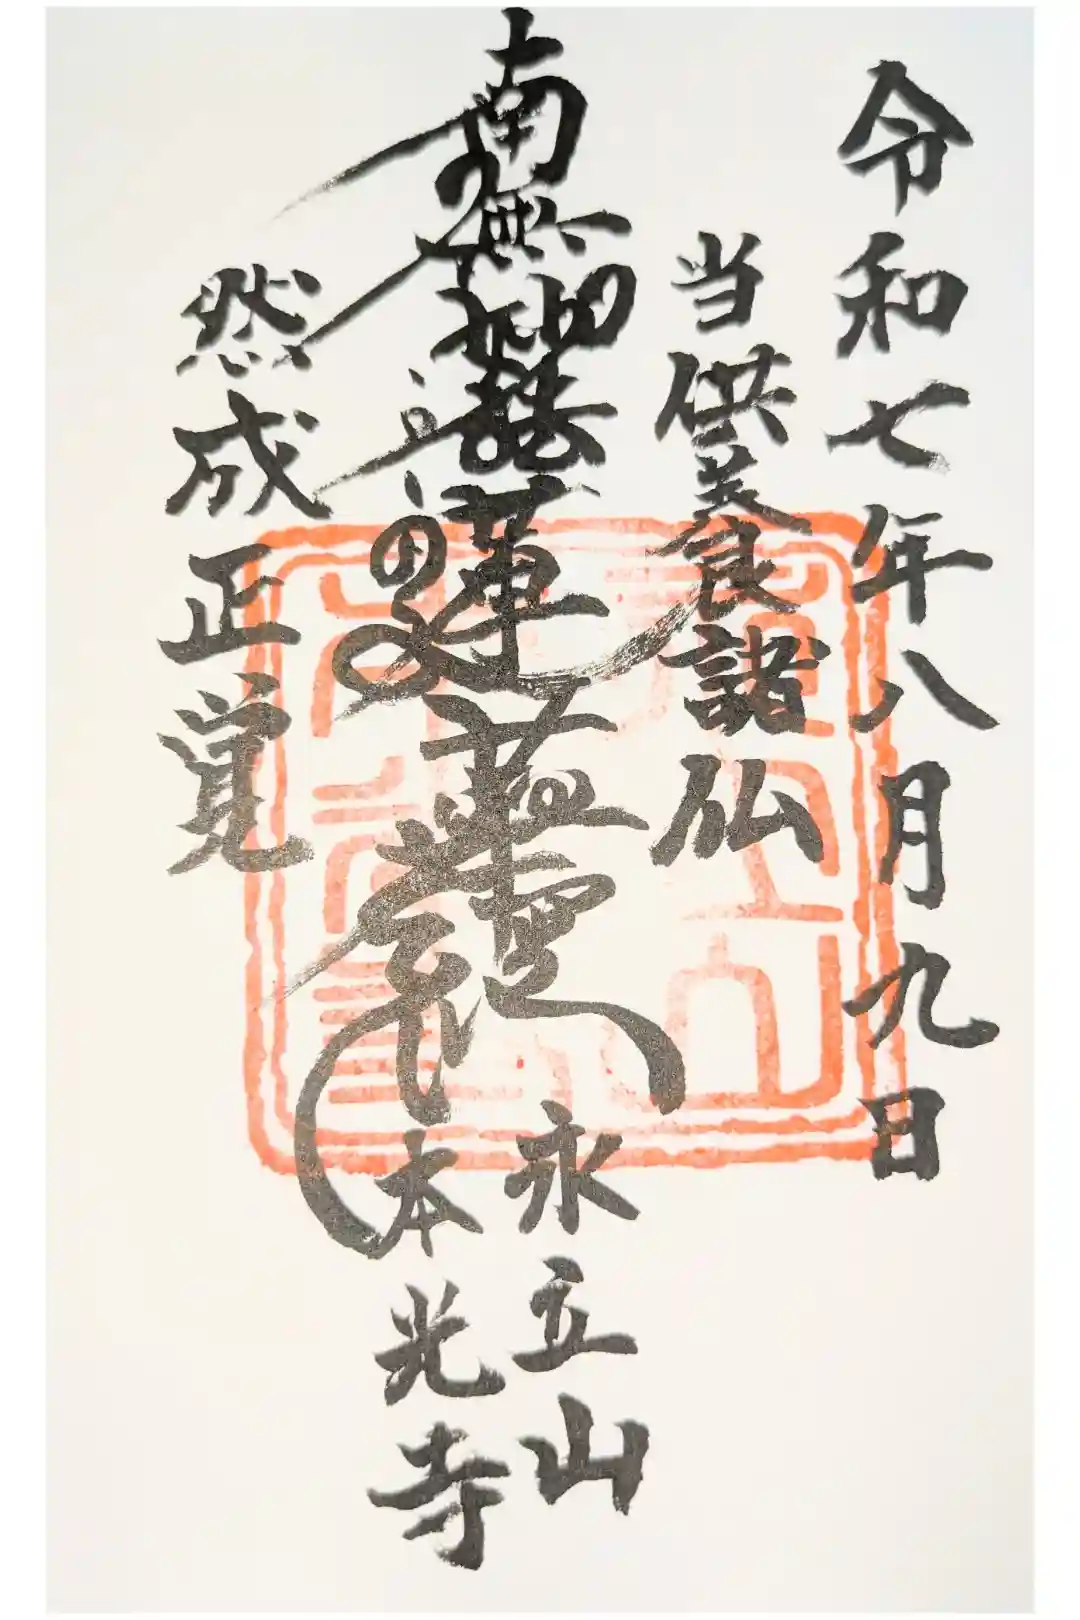 令和七年八月九日
当供養諸仏
南無妙法蓮華経
然成正覚
永立山
本光寺